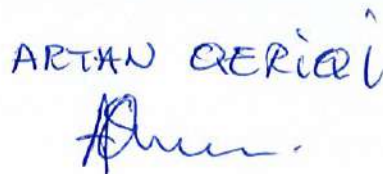 ARTAN QERiQi